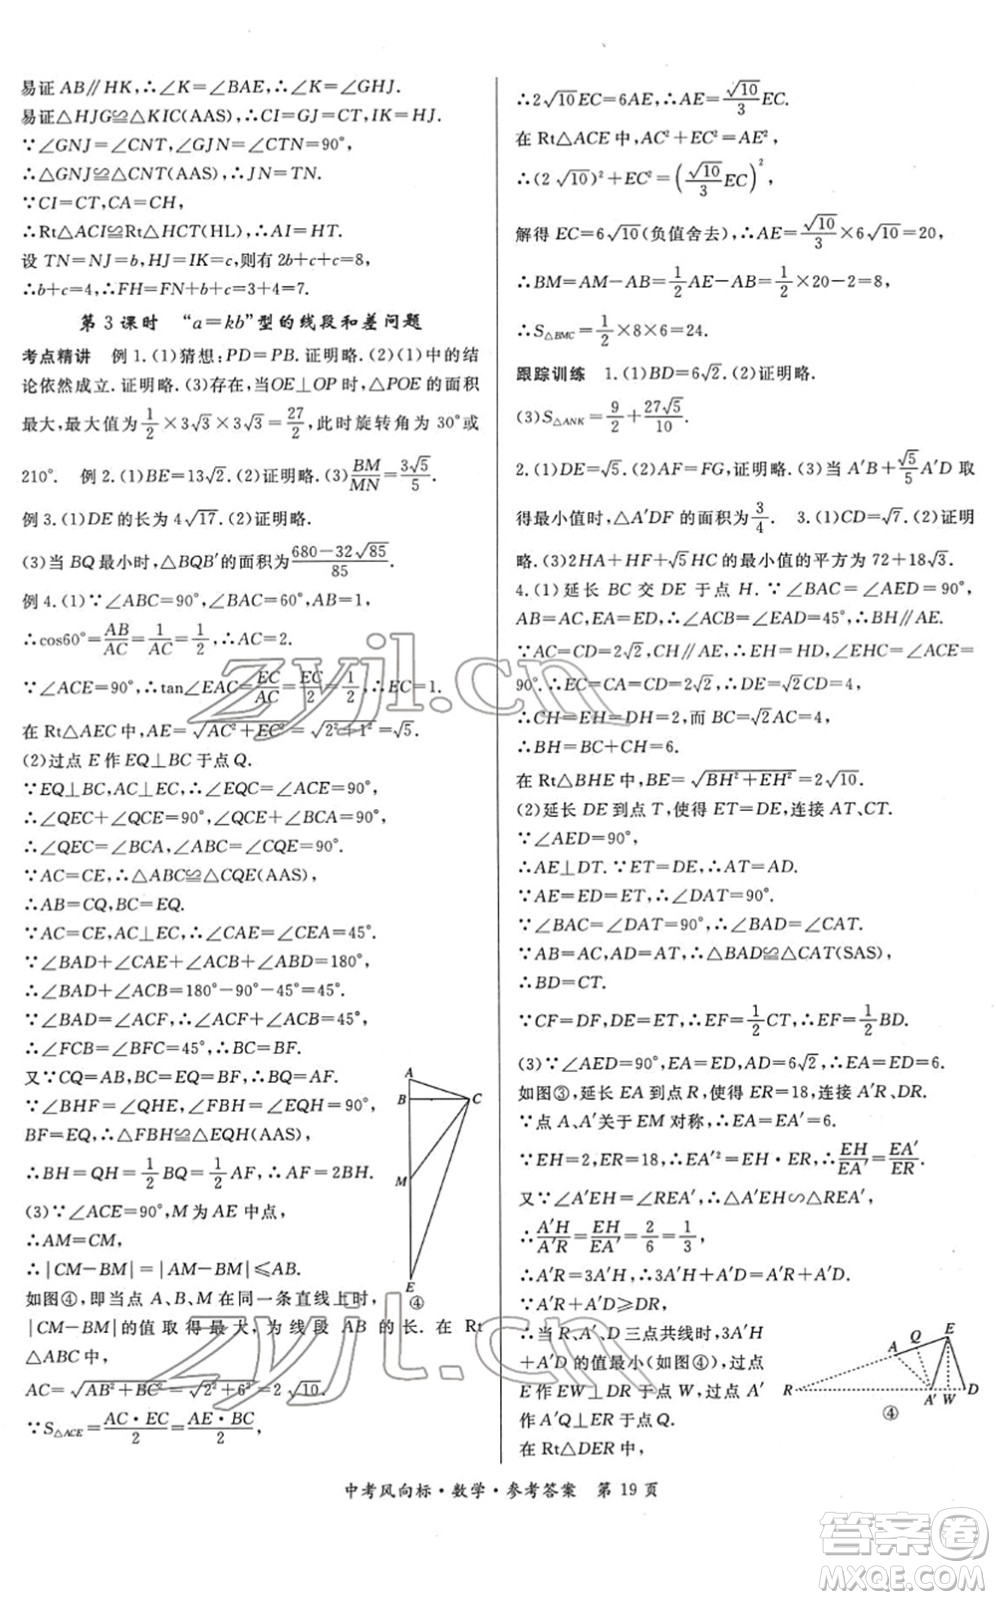 易证 AB∥HK,∴∠K=∠BAE,∴∠K=∠GHJ.
易证△HJG≌△KIC(AAS),∴CI=GJ=CT,KI=HJ.
∵∠GNJ=∠CNT,∠GJN=∠CTN=90°,
∴△GNJ≌△CNT(AAS),∴JN=TN.
∵CI=CT,CA=CH,
∴Rt△ACI≌Rt△HCT(HL),∴AI=HT.
设 TN=NJ=b,HJ=IK=c,则有 2b+c+c=8,
∴b+c=4,∴FH=FN+b+c=3+4=7.
第 3 课时 “a=kb”型的线段和差问题
考点精讲 例 1.(1)猜想:PD=PB.证明略.(2)(1)中的结
论依然成立.证明略.(3)存在,当OE⊥OP时,△POE的面积
最大,最大值为1/2×3√3×3√3=27/2,此时旋转角为 30°或
210°. 例 2.(1)BE=13√2.(2)证明略.(3)BM/MN=3√5/5.
例 3.(1)DE 的长为 4√17.(2)证明略.
(3)当 BQ 最小时,△BQB′的面积为(680-32√85)/85.
例 4.(1)∵∠ABC=90°,∠BAC=60°,AB=1,
∴cos60°=AB/AC=1/AC=1/2,∴AC=2.
∵∠ACE=90°,∴tan∠EAC=EC/AC=EC/2=1/2,∴EC=1.
在 Rt△AEC 中,AE=√(AC²+EC²)=√(2²+1²)=√5.
(2)过点 E 作 EQ⊥BC 于点 Q.
∵EQ⊥BC,AC⊥EC,∴∠EQC=∠ECA=90°,
∴∠QEC+∠QCE=90°,∠QCE+∠BCA=90°,
∴∠QEC=∠BCA,∠ABC=∠CQE=90°.
∵AC=CE,∴△ABC≌△CQE(AAS),
∴AB=CQ,BC=EQ.
∵AC=CE,AC⊥CE,∴∠CAE=∠CEA=45°.
∵∠BAD+∠CAE+∠ACB+∠ABD=180°,
∴∠BAD+∠ACB=180°-90°-45°=45°.
∵∠BAD=∠ACF,∴∠ACF+∠ACB=45°,
∴∠FCB=∠BFC=45°,∴BC=BF.
又∵CQ=AB,BC=BF,∴BQ=AF.
∵∠BHF=∠QHE,∠FBH=∠EQH=90°,
BF=EQ,∴△FBH≌△EQH(AAS),
∴BH=QH=1/2BQ=1/2AF,∴AF=2BH.
(3)∵∠ACE=90°,M 为 AE 中点,
∴AM=CM,
∴|CM-BM|=|AM-BM|≤AB.
如图④,即当点 A、B、M 在同一条直线上时,
|CM-BM|的值取得最大,为线段 AB 的长.在 Rt
△ABC 中,
AC=√(AB²+BC²)=√(2²+6²)=2√10.
∵S△ACE=AC·EC/2=AE·BC/2,
A
B
C
M
E
④
∴2√10EC=6AE,∴AE=√10/3EC.
在 Rt△ACE 中,AC²+EC²=AE²,
∴(2√10)²+EC²=(√10/3EC)²,
解得 EC=6√10(负值舍去),∴AE=√10/3×6√10=20,
∴BM=AM-AB=1/2AE-AB=1/2×20-2=8,
∴S△BMC=1/2×8×6=24.
跟踪训练 1.(1)BD=6√2.(2)证明略.
(3)S△ANK=9/2+27√5/10.
2.(1)DE=√5.(2)AF=FG,证明略.(3)当 A′B+√5/5A′D 取
得最小值时,△A′DF 的面积为3/4. 3.(1)CD=√7.(2)证明
略.(3)2HA+HF+√5HC 的最小值的平方为 72+18√3.
4.(1)延长 BC 交 DE 于点 H.∵∠BAC=∠AED=90°,
AB=AC,EA=ED,∴∠ACB=∠EAD=45°,∴BH∥AE.
∵AC=CD=2√2,CH∥AE,∴EH=HD,∠EHC=∠AED=
90°.∵AC=CD,∴CA=CD=2√2,∴DE=√2CD=4,
∴CH=EH=DH=2,而 BC=√2AC=4,
∴BH=BC+CH=6.
在 Rt△BHE 中,BE=√(BH²+EH²)=2√10.
(2)延长 DE 到点 T,使得 ET=DE,连接 AT,CT.
∵∠AED=90°,
∴AE⊥DT.∵ET=DE,∴AT=AD.
∵AE=ED=ET,∴∠DAT=90°.
∵∠BAC=∠DAT=90°,∴∠BAD=∠CAT.
∵AB=AC,AD=AT,∴△BAD≌△CAT(SAS),
∴BD=CT.
∵CF=DF,DE=ET,∴EF=1/2CT,∴EF=1/2BD.
(3)∵∠AED=90°,EA=ED,AD=6√2,∴EA=ED=6.
如图③,延长 EA 到点 R,使得 ER=18,连接 A′R,DR.
∵点 A、A′关于 EM 对称,∴EA=EA′=6.
∵EH=2,ER=18,∴EA′²=EH·ER,∴EH/EA′=EA′/ER.
又∵∠A′EH=∠REA′,∴△A′EH∽△REA′,
∴A′H/A′R=EH/EA′=2/6=1/3,
∴A′R=3A′H,∴3A′H+A′D=A′R+A′D.
∵A′R+A′D≥DR,
∴当 R、A′、D 三点共线时,3A′H
+A′D 的值最小(如图④),过点
E 作 EW⊥DR 于点 W,过点 A′
作 A′Q⊥ER 于点 Q.
在 Rt△DER 中,
E
Q
A
R
A′
W
D
④
中考风向标·数学·参考答案 第 19 页
zyjl.cn
zyjl.cn
答案卷
MXQE.COM